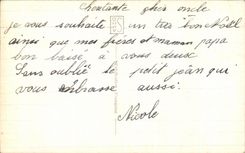 Cher tante cher oncle
je vous souhaite un très bon Noël
ainsi que mes frères et maman papa
bon baisé à vous deux
Sans oublié le petit jean qui
vous embrasse aussi.
Nicole